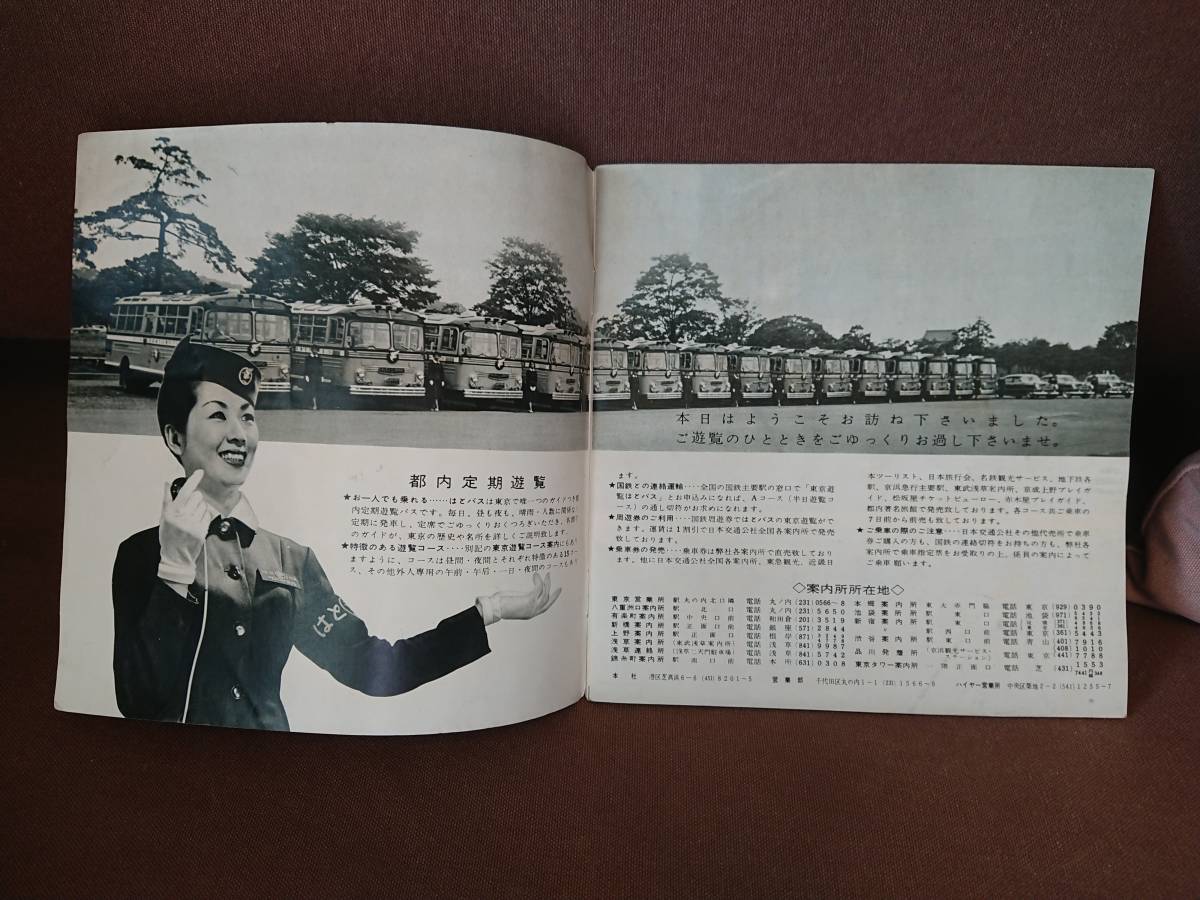 はとバス
都内定期遊覧
★お一人でも乗れる……はとバスは東京で唯一つのガイドつき都
内定期遊覧バスです。毎日、昼も夜も、晴雨・人数に関係なく
定期に発車し、定席でごゆっくりおくつろぎいただき、
のガイドが、東京の歴史や名所を詳しくご説明致します。
★特徴のある遊覧コース‥‥別記の東京遊覧コース案内にもあり
ますように、コースは昼間・夜間とそれぞれ特徴のある15コー
ス、その他外人専用の午前・午后・一日・夜間のコースもあり
本日はようこそお訪ね下さいました。
ご遊覧のひとときをごゆっくりお過し下さいませ。
ます。
★国鉄との連絡運輸‥‥全国の国鉄主要駅の窓口で「東京遊
覧はとバス」とお申込みになれば、Aコース(半日遊覧コ
ース)の通し切符がお求めになれます。
★周遊券のご利用‥‥国鉄周遊券ではとバスの東京遊覧がで
きます。運賃は1割引で日本交通公社全国各案内所で発売
致しております。
★乗車券の発売‥‥乗車券は弊社各案内所で直売致しており
ます。他に日本交通公社全国各案内所、東急観光、近畿日
本ツーリスト、日本旅行会、名鉄観光サービス、地下鉄各
駅、京浜急行主要駅、東武浅草案内所、京成上野プレイガイ
ド、松坂屋チケットビューロー、赤木屋プレイガイド、
都内著名旅館で発売致しております。各コース共ご乗車の
7日前から前売も致しております。
★ご乗車の際のご注意‥‥日本交通公社その他代売所で乗車
券ご購入の方も、国鉄の連絡切符をお持ちの方も、弊社各
案内所で乗車指定票をお受取りの上、係員の案内によって
ご乗車願います。
◇案内所所在地◇
東京営業所 駅丸の内北口隣 電話 丸ノ内(231)0566〜8
八重洲口案内所 駅北口 電話 丸ノ内(231)5650
有楽町案内所 駅中央口前 電話 和田倉(201)3519
新橋案内所 駅正面口前 電話 銀座(571)2844
上野案内所 駅正面口 電話 根岸(871)
浅草案内所 (東武浅草案内所) 電話 浅草(841)9987
浅草連絡所 (浅草二天門駐車場) 電話 浅草(841)5742
錦糸町案内所 駅南口前 電話 本所(631)0308
本郷案内所 東大赤門脇 電話 東京(929)0390
池袋案内所 駅東口 電話 池袋(971)
新宿案内所 駅東口
駅西口前 電話 東京(361)5443
渋谷案内所 駅東口前 電話 青山(401)7916
品川発着所 (京浜観光サービス・ステーション) 電話 東京(441)7788
(408)1010
東京タワー案内所 一階正面口 電話 芝(431)1553
本社 港区芝高浜6−6 (453)8201〜5 営業部 千代田区丸の内1−1 (231)1566〜9 ハイヤー営業所 中央区築地2−2 (541)1255〜7